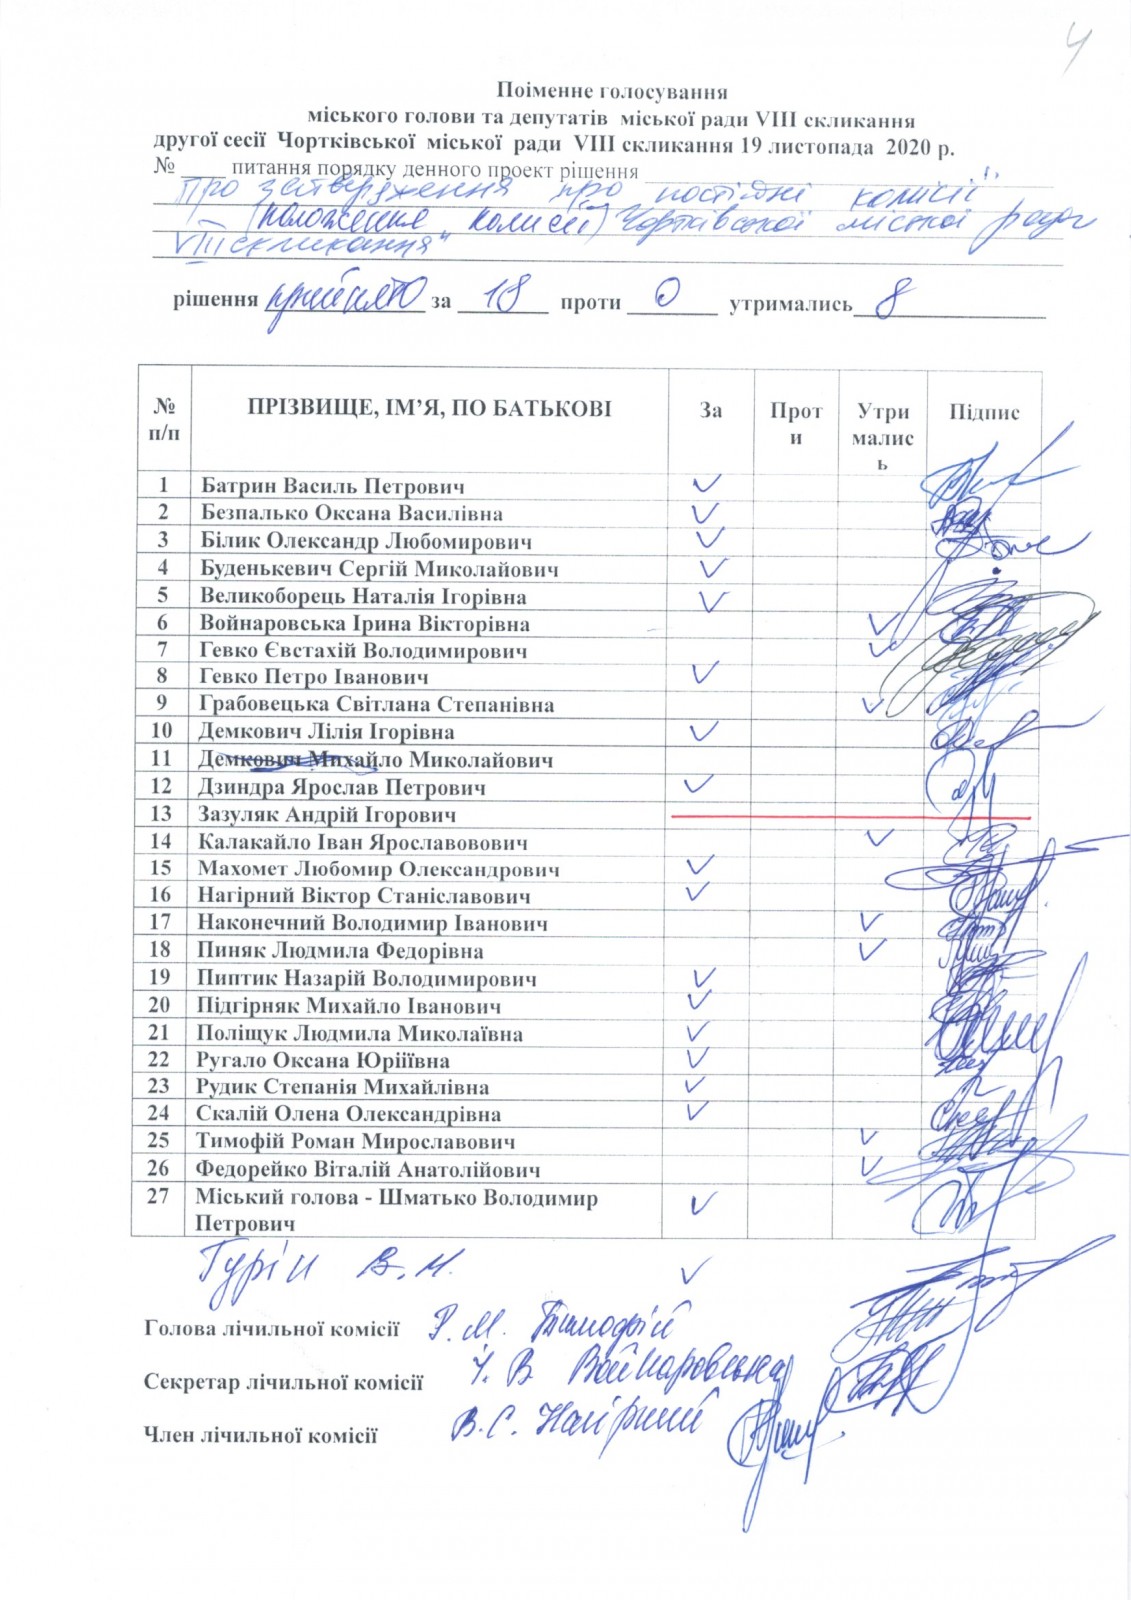 4
Поіменне голосування
міського голови та депутатів міської ради VIII скликання
другої сесії Чортківської міської ради VIII скликання 19 листопада 2020 р.
№ ____ питання порядку денного проект рішення
Про затвердження про постійні комісії
(положення „ комісії) Чортківської міської ради
VIII скликання"
рішення прийнято за 18 проти 0 утримались 8
№ п/п ПРІЗВИЩЕ, ІМ’Я, ПО БАТЬКОВІ За Проти Утрималиcь Підпис
1 Батрин Василь Петрович ✓
2 Безпалько Оксана Василівна ✓
3 Білик Олександр Любомирович ✓
4 Буденькевич Сергій Миколайович ✓
5 Великоборець Наталія Ігорівна ✓
6 Войнаровська Ірина Вікторівна ✓
7 Гевко Євстахій Володимирович ✓
8 Гевко Петро Іванович ✓
9 Грабовецька Світлана Степанівна ✓
10 Демкович Лілія Ігорівна ✓
11 Демкович Михайло Миколайович
12 Дзиндра Ярослав Петрович ✓
13 Зазуляк Андрій Ігорович
14 Калакайло Іван Ярославовович ✓
15 Махомет Любомир Олександрович ✓
16 Нагірний Віктор Станіславович ✓
17 Наконечний Володимир Іванович ✓
18 Пиняк Людмила Федорівна ✓
19 Пиптик Назарій Володимирович ✓
20 Підгірняк Михайло Іванович ✓
21 Поліщук Людмила Миколаївна ✓
22 Ругало Оксана Юріїївна ✓
23 Рудик Степанія Михайлівна ✓
24 Скалій Олена Олександрівна ✓
25 Тимофій Роман Мирославович ✓
26 Федорейко Віталій Анатолійович ✓
27 Міський голова - Шматько Володимир ✓
Петрович
Гурін В.М. ✓
Голова лічильної комісії Р.М. Тимофій
Секретар лічильної комісії І.В Войнаровська
Член лічильної комісії В.С. Нагірний